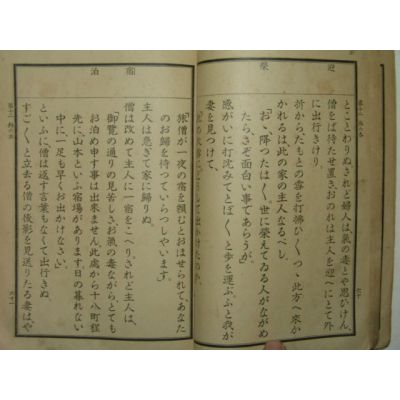 とことわりぬされど婦人は氣の毒とや思ひけん、
僧をば待たせ置き、おのれは主人を迎へにとて外
に出行きけり
折からたもとの雪を打拂ひくつゝ此方へ來か
かれるは、此の家の主人なるべし。
「おゝ降つたはく。世に榮えてゐる人がながめ
たら、さぞ面白い事であらうが、
感がいに打沈みてとぼくと歩を運ぶ、ふと我が
妻を見つけて、
旅僧が一夜の宿を頼むとおほせられて、あなた
のお歸を待つていらつしやいます。」
主人は急ぎて家に歸りぬ。
僧は改めて主人に一宿をこへり、されど主人は、
「御覽の通りの見苦しさ、お氣の毒ながら、とても
お泊め申す事は出來ません。此處から十八町程
先に、山本といふ宿場があります。日の暮れない
中に、一足も早くお出かけなさい。」
といふに、僧は返す言葉もなくて出行きぬ。
すごくと立去る僧の後影を見送りたる妻は、や